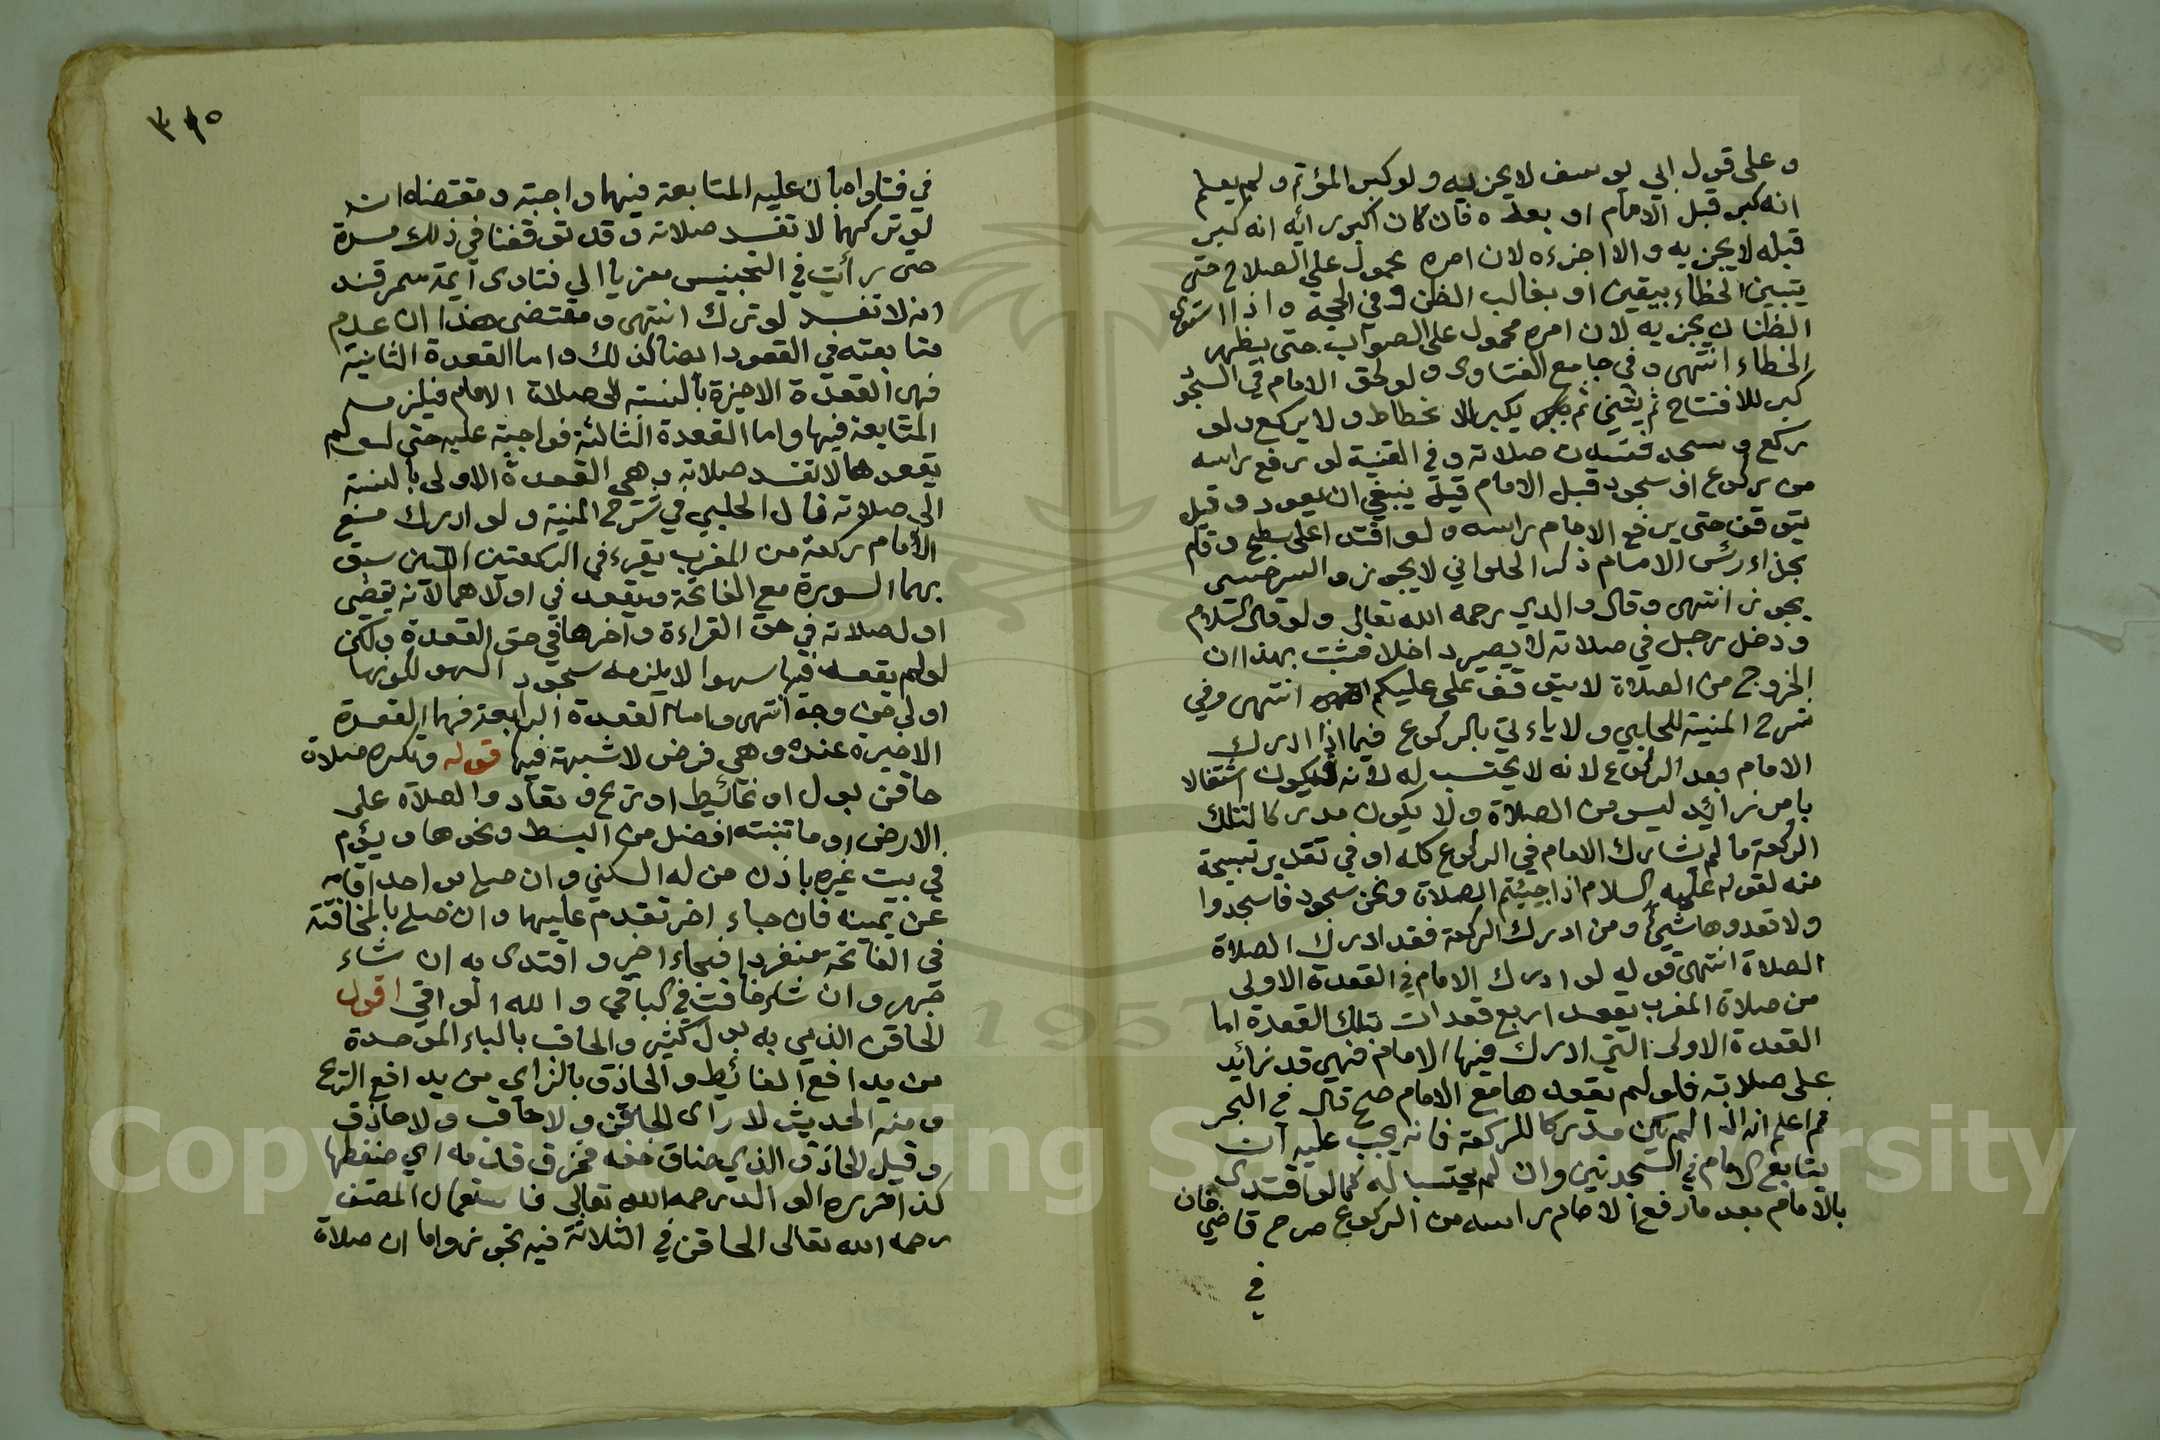 و على قول ابي يوسف لا يجزيه و لو كبر المؤتم و لم يعلم
انه كبر قبل الامام او بعده فان كان اكبر رايه انه كبر
قبله لا يجزيه و الا اجزءه لان امره محمول على الصلاح حتى
يتبين الخطاء بيقين او بغالب الظن و في الحجة و اذا استوى
الظنان يجزيه لان امره محمول على الصواب حتى يظهر
الخطاء انتهى و في جامع الفتاوى و لو لحق الامام في السجود
كبر للافتتاح ثم يثني ثم يكبر للانحطاط و لا يركع و لو
ركع و سجد فسدت صلاته و في القنية لو رفع راسه
من ركوع او سجود قبل الامام قيل ينبغي ان يعود و قيل
يتوقف حتى يرفع الامام راسه و لو اقتدا على سطح و قام
بحذاء رئس الامام ذكر الحلواني لا يجوز و السرخسي
يجوز انتهى و قال والدي رحمه الله تعالى و لو قال السلام
و دخل رجل في صلاته لا يصير داخلا فثبت بهذا ان
الخروج من الصلاة لا يتوقف على عليكم انتهى و في
شرح المنية للحلبي و لا ياءتي بالركوع فيما اذا ادرك
الامام بعد الركوع لانه لا يحتسب له لانه يكون اشتغالا
بامر زائد ليس من الصلاة و لا يكون مدركا لتلك
الركعة ما لم يشارك الامام في الركوع كله او في تقدير تسبيحة
منه لقوله عليه السلام اذا جيئتم الصلاة و نحن سجود فاسجدوا
و لا تعدوها شيئ و من ادرك الركعة فقد ادرك الصلاة
الصلاة انتهى قوله لو ادرك الامام في القعدة الاولى
من صلاة المغرب يقعد اربع قعدات تلك القعدة اما
القعدة الاولى التي ادرك فيها الامام فهي قد زائد
على صلاته فلو لم يقعدها مع الامام صح قال في البحر
ثم اعلم انه اذا لم يكن مدركا للركعة فانه يجب عليه ان
يتابع الامام في السجدتين و ان لم يحتسبا له كما لو اقتدى
بالامام بعد ما رفع الامام راسه من الركوع صرح قاضي خان
في
٣١٥
في فتاواه بان عليه المتابعة فيهما واجبة و مقتضاه ان
لو تركهما لا تفسد صلاته و قد توقفنا في ذلك مدة
حتى رأيت في التجنيس معزيا الى فتاوى ائمة سمرقند
انه لا تفسد لو ترك انتهى و مقتضى هذا ان عدم
متابعته في القعود ايضا كذلك و اما القعدة الثانية
فهي القعدة الاخيرة بالنسبة الى صلاة الامام فيلزمه
المتابعة فيها و اما القعدة الثالثة فواجبة عليه حتى لو لم
يقعدها لا تفسد صلاته و هي القعدة الاولى بالنسبة
الى صلاته قال الحلبي في شرح المنية و لو ادرك مع
الامام ركعة من المغرب يقرء في الركعتين اللتين سبق
بهما السورة مع الفاتحة و يقعد في اولاهما لانه يقضي
اول صلاته في حق القراءة و اخرها في حق القعدة و لكن
لو لم يقعد فيها سهوا لا يلزمه سجود السهو لكونها
اولى من وجه انتهى و اما القعدة الرابعة فهي القعدة
الاخيرة عنده و هي فرض لا شبهة فيها قوله و تكره صلاة
حاقن ببول او غائط او ريح و تعاد و الصلاة على
الارض او ما تنبته افضل من البسط و نحوها و يؤم
في بيت غيره باذن من له السكنى و ان صلى بواحد اقامه
عن يمينه فان جاء اخر تقدم عليهما و ان صلى بالمخافتة
في الفاتحة منفردا فجاء اخر و اقتدى به ان شاء
جهر و ان شاء خافت في الباقي و الله الواقي اقول
الحاقن الذي به بول كثير و الحاقب بالباء الموحدة
من يدافع الغائط و الحازق بالزاي من يدافع الريح
و منه الحديث لا راى لحاقن و لا حاقب و لا حازق
و قيل الحازق الذي ضاق خفه فحزق قدمه اي ضغطها
كذا قرره الوالد رحمه الله تعالى فاستعمال المصنف
رحمه الله تعالى الحاقن في الثلاثة فيه تجوز و اما ان صلاة
Copyright © King Saud University
1957